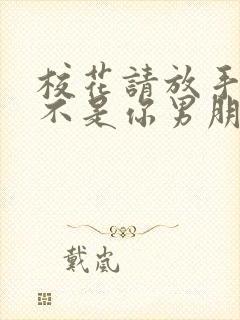 校花請放手
不是你男朋
戴嵐